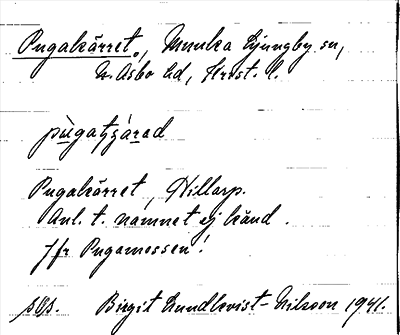 Pugakärret, Munka Ljungby sn,
N. Åsbo hd, Krist. l.
Pugakärret, Hillarp.
Anl. t. namnet ej känd.
Jfr Pugamossen!
Birgit Lundkvist-Nilsson 1941.